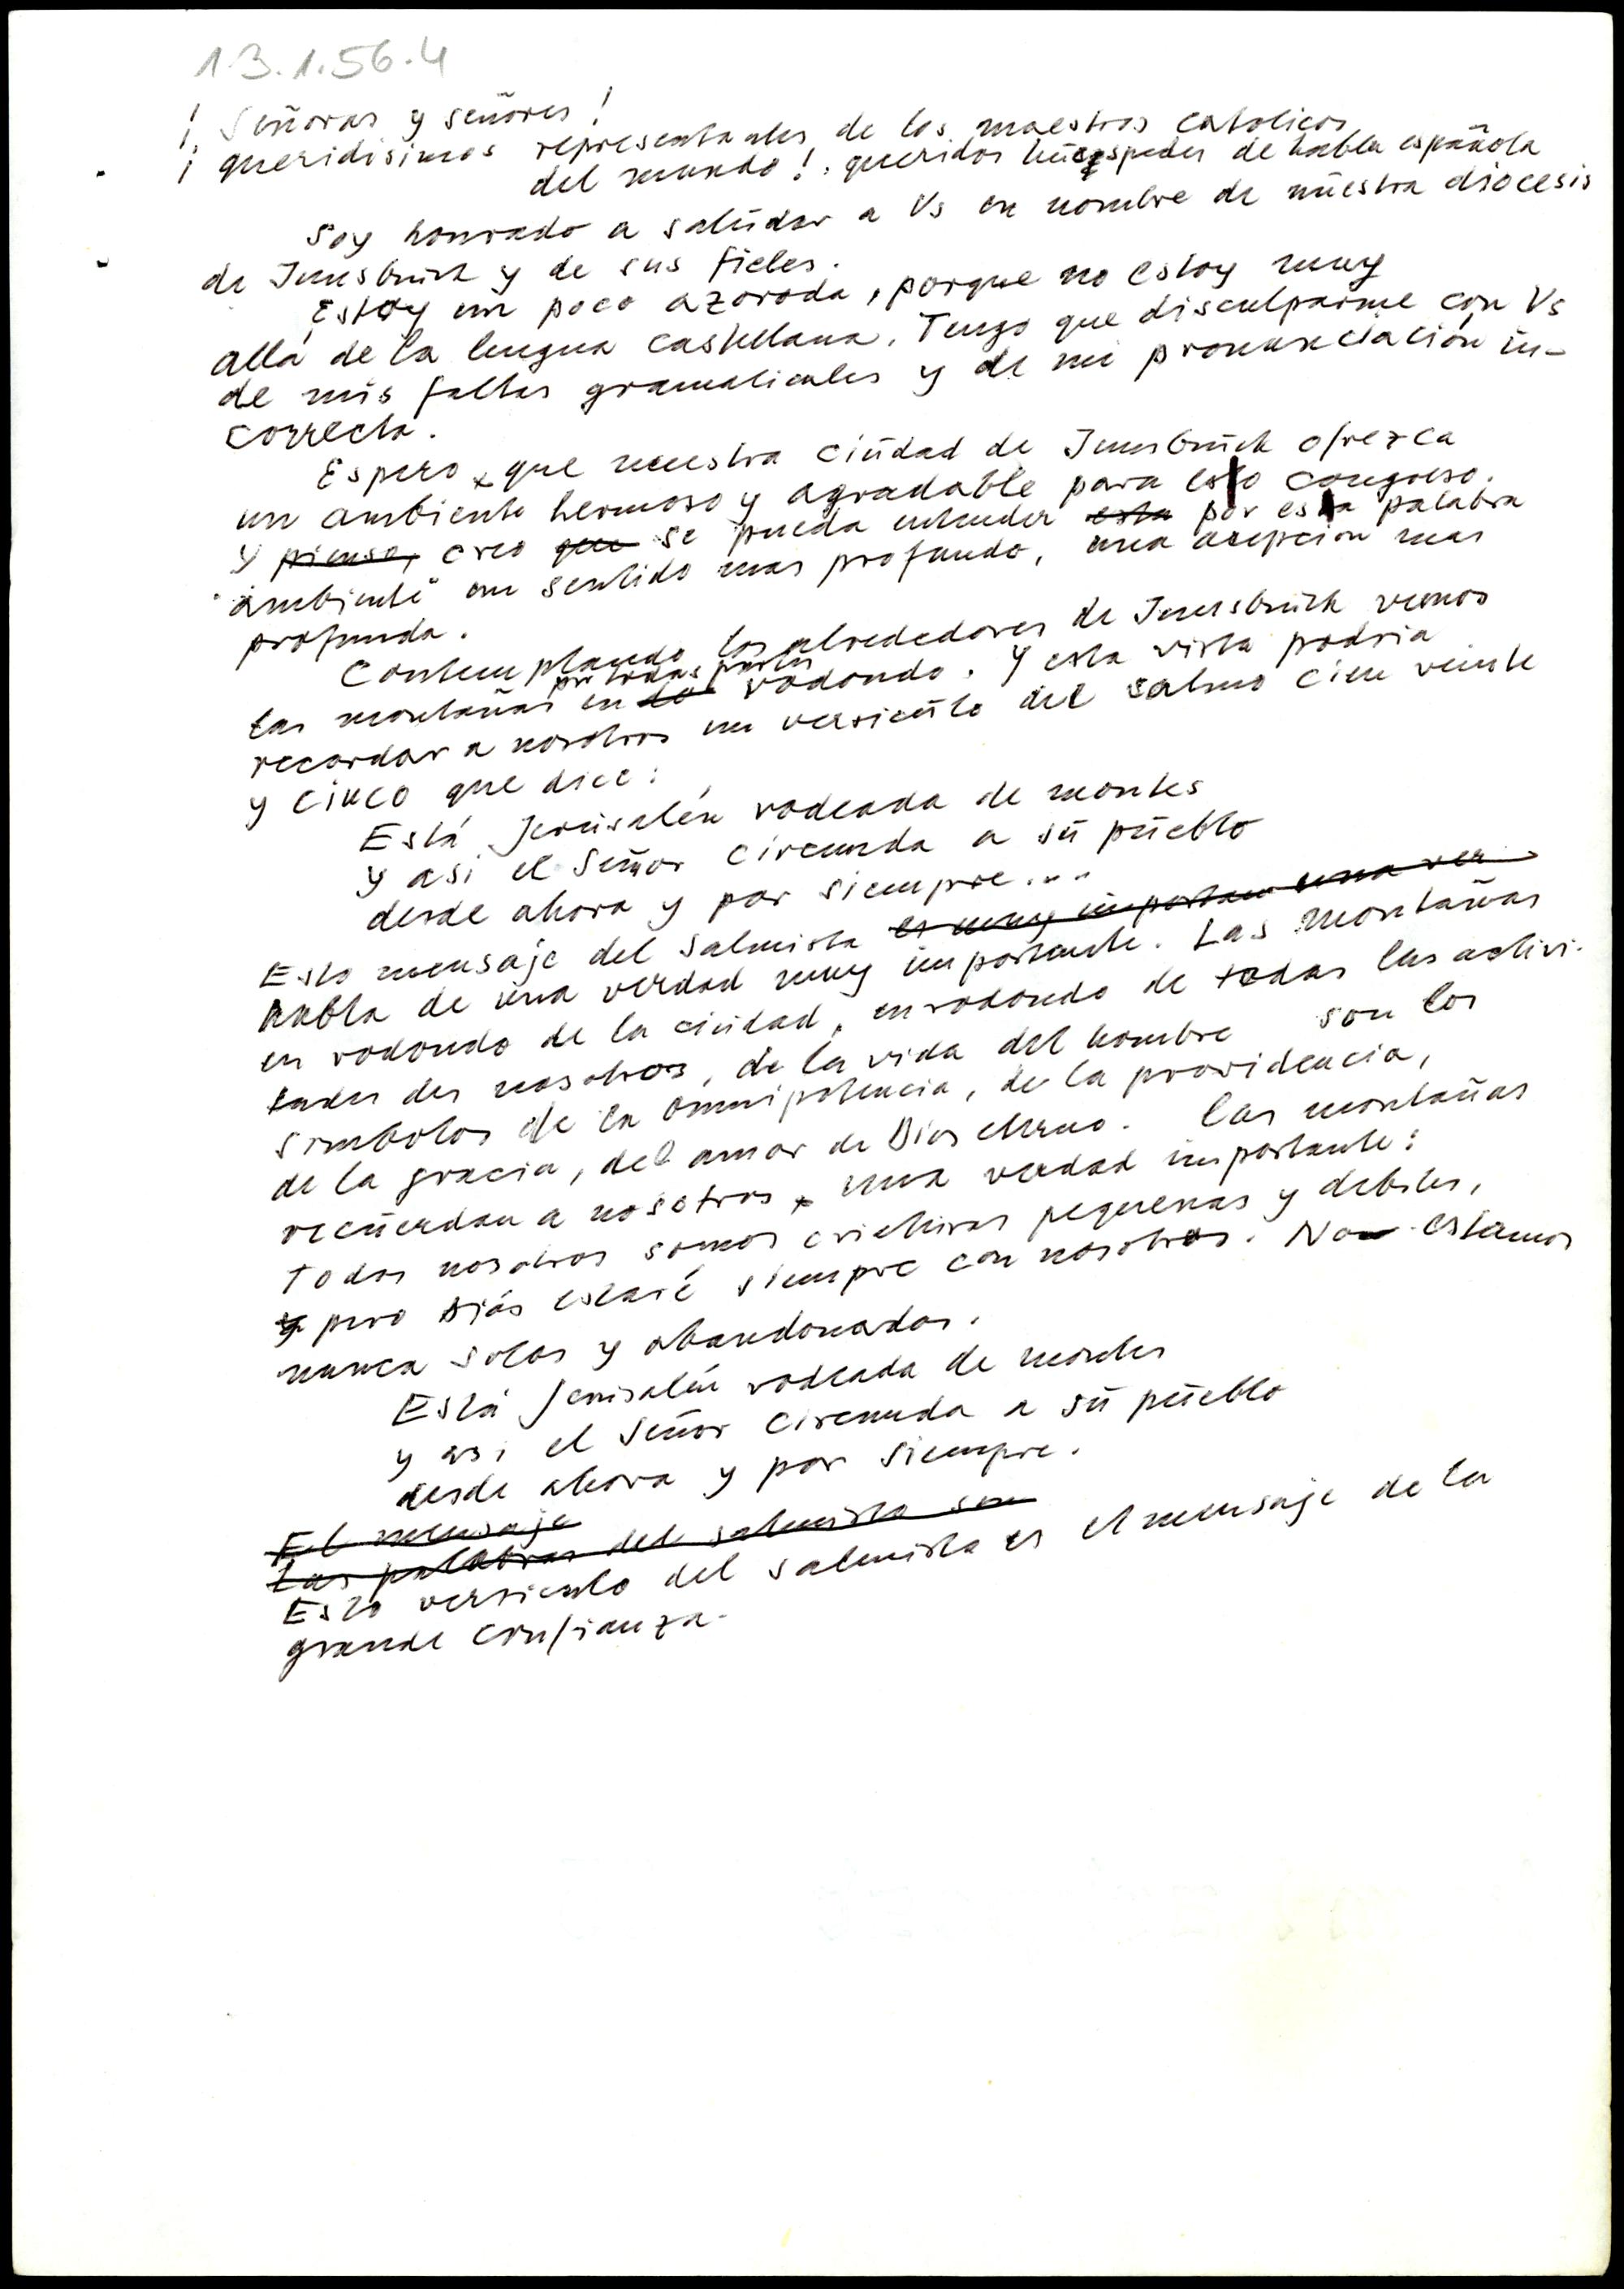 13.1.56.4
¡ Señoras y señores!
¡ queridisimos representantes de los maestros catolicos
del mundo!, queridos huespedes de habla española
Soy honrado a saludar a Vs en nombre de nuestra diocesis
de Innsbruck y de sus fieles.
Estoy un poco azorada, porque no estoy muy
allá de la lengua castellana. Tengo que disculparme con Vs
de mis faltas gramaticales y de mi pronunciación in-
correcta.
Espero que nuestra ciudad de Innsbruck ofrezca
un ambiente hermoso y agradable para esto congreso.
y pienso, creo que se pueda entender esta por esta palabra
"ambiente" un sentido mas profundo, una acepcion mas
profunda.
Contemplando los alrededores de Innsbruck vemos
por todas partes
las montañas en rodondo. Y esta vista podria
recordar a nosotros un versiculo del salmo cien veinte
y cinco que dice:
Está Jerusalén rodeada de montes
y asi el Señor circunda a su pueblo
desde ahora y por siempre...
Esto mensaje del salmista es muy importan una ver
habla de una verdad muy importante. Las montañas
en rodondo de la ciudad, en rodondo de todas las activi-
tades des nosotros, de la vida del hombre son los
simbolos de la omnipotencia, de la providencia,
de la gracia, del amor de Dios eterno. las montañas
recuerdan a nosotros una verdad importante:
Todos nosotros somos crieturas pequenas y debiles,
y pero Diós estaré siempre con nosotros. No estamos
nunca solos y abandonados.
Está Jerusalén rodeada de montes
y asi el Señor circunda a su pueblo
desde ahora y por siempre.
El mensaje
Las palabras del salmista son
Esto versiculo del salmista es el mensaje de la
grande confianza.